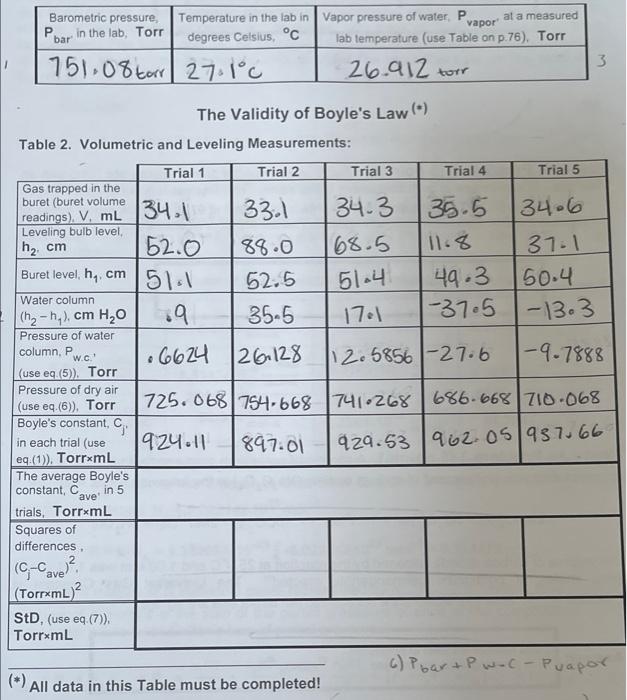 Barometric pressure, P bar, in the lab, Torr | Temperature in the lab in degrees Celsius, °C | Vapor pressure of water, P vapor, at a measured lab temperature (use Table on p.76), Torr
751.08 torr | 27.1°C | 26.912 torr
3
The Validity of Boyle's Law (*)
Table 2. Volumetric and Leveling Measurements:
Trial 1 | Trial 2 | Trial 3 | Trial 4 | Trial 5
Gas trapped in the buret (buret volume readings), V, mL | 34.1 | 33.1 | 34.3 | 35.5 | 34.6
Leveling bulb level, h2, cm | 52.0 | 88.0 | 68.5 | 11.8 | 37.1
Buret level, h1, cm | 51.1 | 52.5 | 51.4 | 49.3 | 50.4
Water column (h2 – h1), cm H2O | .9 | 35.5 | 17.1 | -37.5 | -13.3
Pressure of water column, P w.c., (use eq.(5)), Torr | .6624 | 26.128 | 12.5856 | -27.6 | -9.7888
Pressure of dry air (use eq.(6)), Torr | 725.068 | 754.668 | 741.268 | 686.668 | 710.068
Boyle's constant, Cj, in each trial (use eq.(1)), Torr×mL | 924.11 | 897.01 | 929.53 | 962.05 | 937.66
The average Boyle's constant, C ave, in 5 trials, Torr×mL
Squares of differences, (Cj–C ave)², (Torr×mL)²
StD, (use eq.(7)), Torr×mL
6) Pbar + P w-c - Pvapor
(*) All data in this Table must be completed!